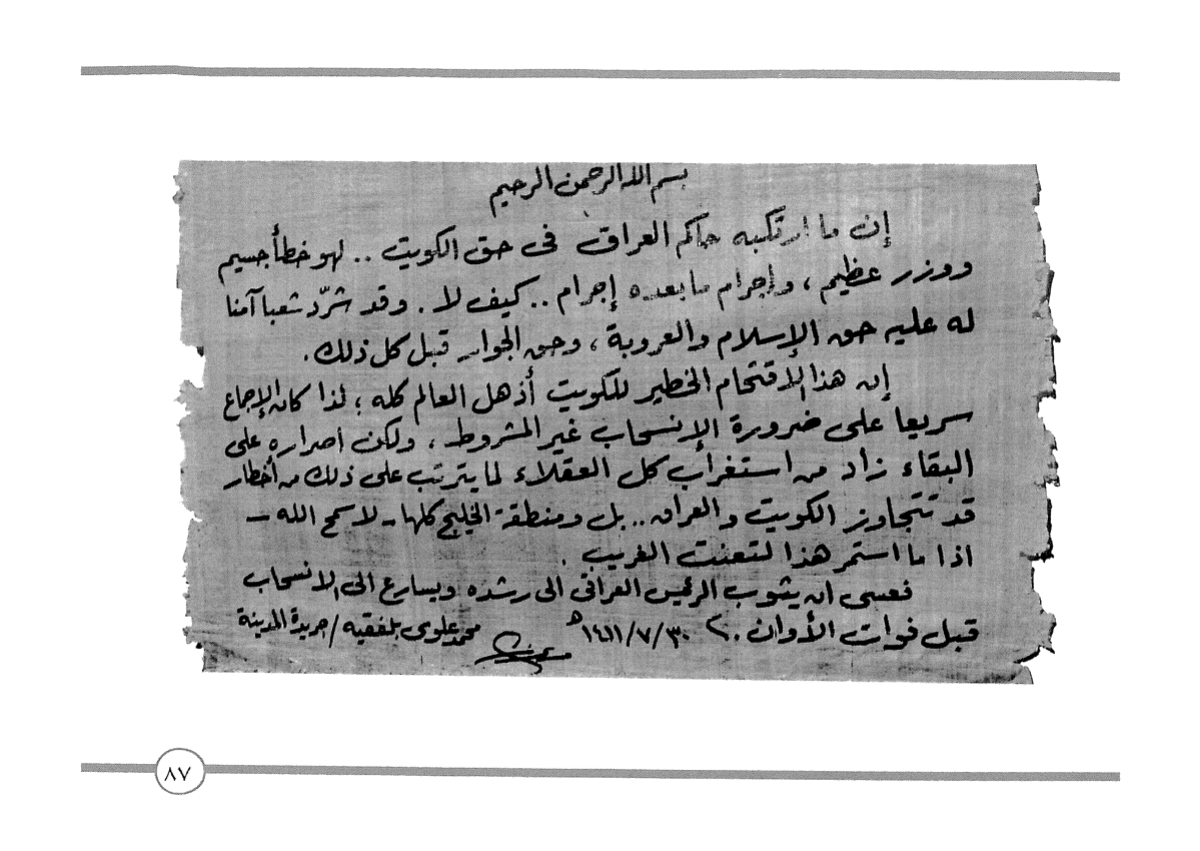 بسم الله الرحمن الرحيم
إن ما ارتكبه حاكم العراق في حق الكويت .. لهو خطأ جسيم
ووزر عظيم ، وإجرام ما بعده إجرام .. كيف لا . وقد شرّد شعبا آمنا
له عليه حق الإسلام والعروبة ، وحق الجوار قبل كل ذلك .
إن هذا الاقتحام الخطير للكويت أذهل العالم كله ؛ لذا كان الإجماع
سريعا على ضرورة الإنسحاب غير المشروط ، ولكن اصراره على
البقاء زاد من استغراب كل العقلاء لما يترتب على ذلك من أخطار
قد تتجاوز الكويت والعراق .. بل ومنطقة الخليج كلها - لا سمح الله -
اذا ما استمر هذا التعنت الغريب .
فعسى ان يثوب الرئيس العراقي الى رشده ويسارع الى الانسحاب
قبل فوات الأوان . ١٤١١/٧/٣٠ هـ محمد علوي بلفقيه / جريدة المدينة
٨٧